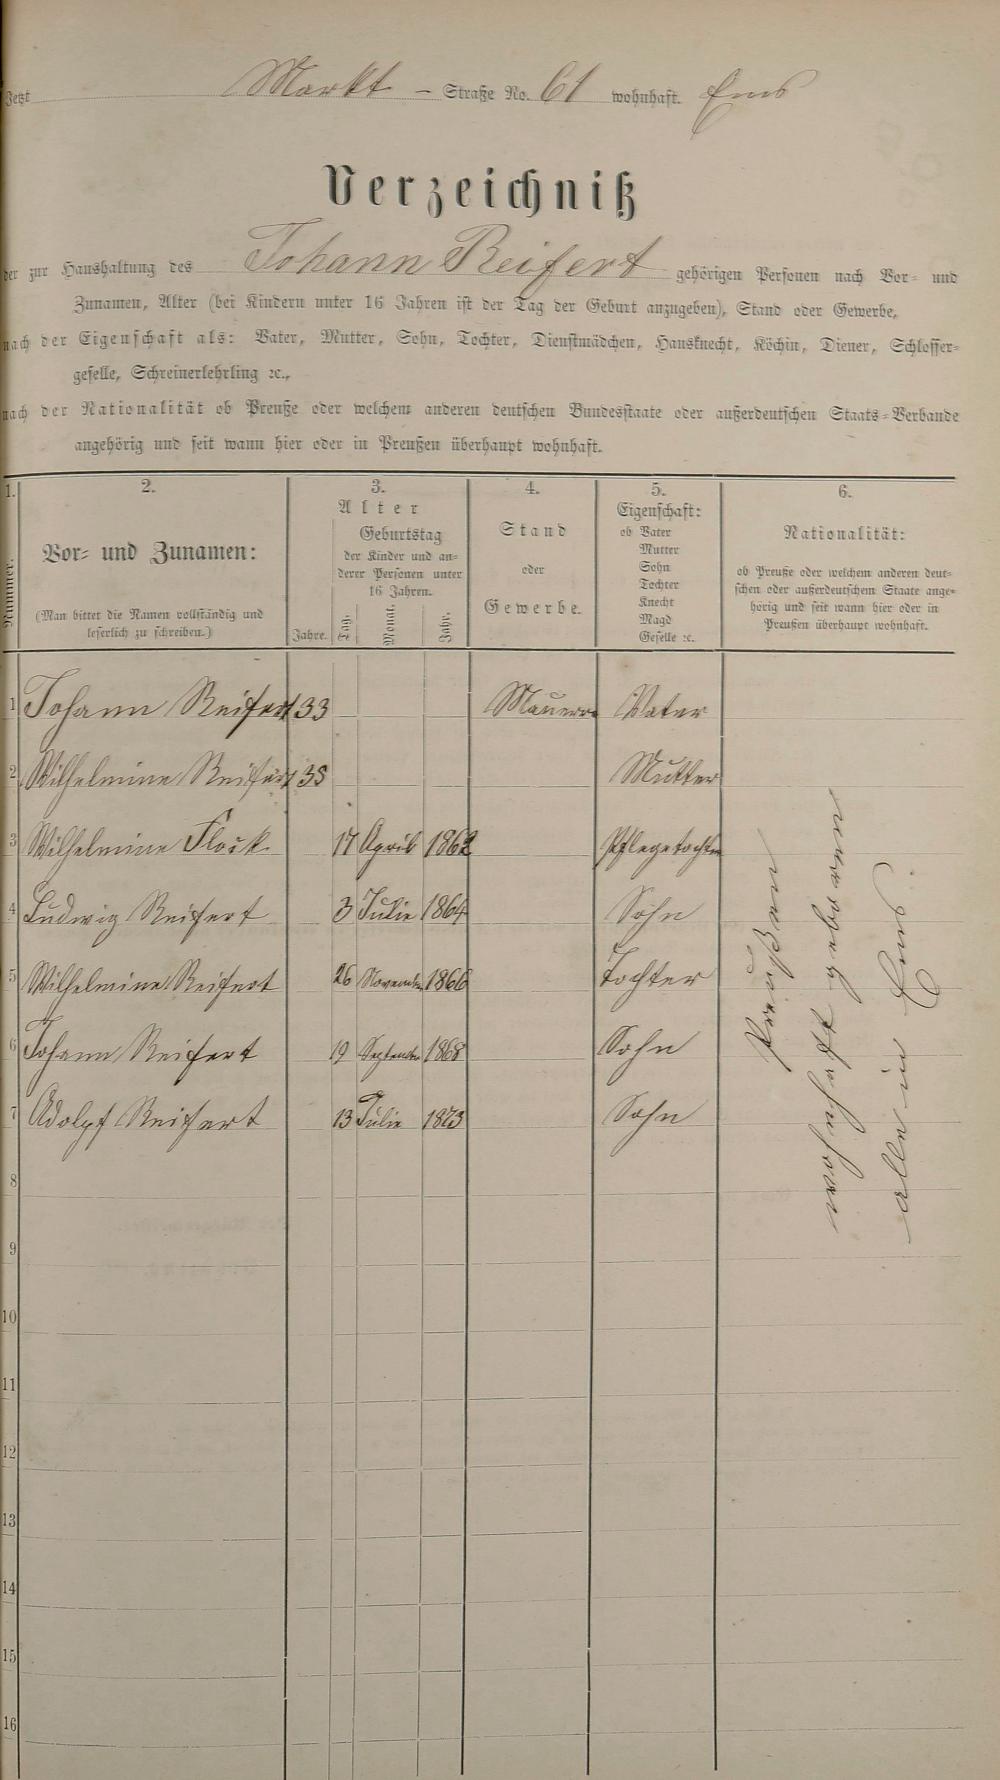 Jetzt Markt - Straße No. 61 wohnhaft. Ems
Verzeichniß
der zur Haushaltung des Johann Reifert gehörigen Personen nach Vor- und
Zunamen, Alter (bei Kindern unter 16 Jahren ist der Tag der Geburt anzugeben), Stand oder Gewerbe,
nach der Eigenschaft als: Vater, Mutter, Sohn, Tochter, Dienstmädchen, Hausknecht, Köchin, Diener, Schlosser-
geselle, Schreinerlehrling ꝛc.,
nach der Nationalität ob Preuße oder welchem anderen deutschen Bundesstaate oder außerdeutschen Staats-Verbande
angehörig und seit wann hier oder in Preußen überhaupt wohnhaft.
1.
Nummer.
2.
Vor- und Zunamen:
(Man bittet die Namen vollständig und
leserlich zu schreiben.)
3.
Alter
Jahre.
Geburtstag
der Kinder und an-
derer Personen unter
16 Jahren.
Tag. Monat. Jahr.
4.
Stand
oder
Gewerbe.
5.
Eigenschaft:
ob Vater
Mutter
Sohn
Tochter
Knecht
Magd
Geselle ꝛc.
6.
Nationalität:
ob Preuße oder welchem anderen deut-
schen oder außerdeutschem Staate ange-
hörig und seit wann hier oder in
Preußen überhaupt wohnhaft.
1 Johann Reifert 33 Maurer Vater
2 Wilhelmine Reifert 35 Mutter
3 Wilhelmine Flöck 17 April 1862 Pflegetochter
4 Ludwig Reifert 3 Julie 1864 Sohn
5 Wilhelmine Reifert 26 November 1866 Tochter
6 Johann Reifert 19 September 1868 Sohn
7 Adolpf Reifert 13 Julie 1873 Sohn
Preußen
wohnhaft geboren
alle in Ems.
8
9
10
11
12
13
14
15
16